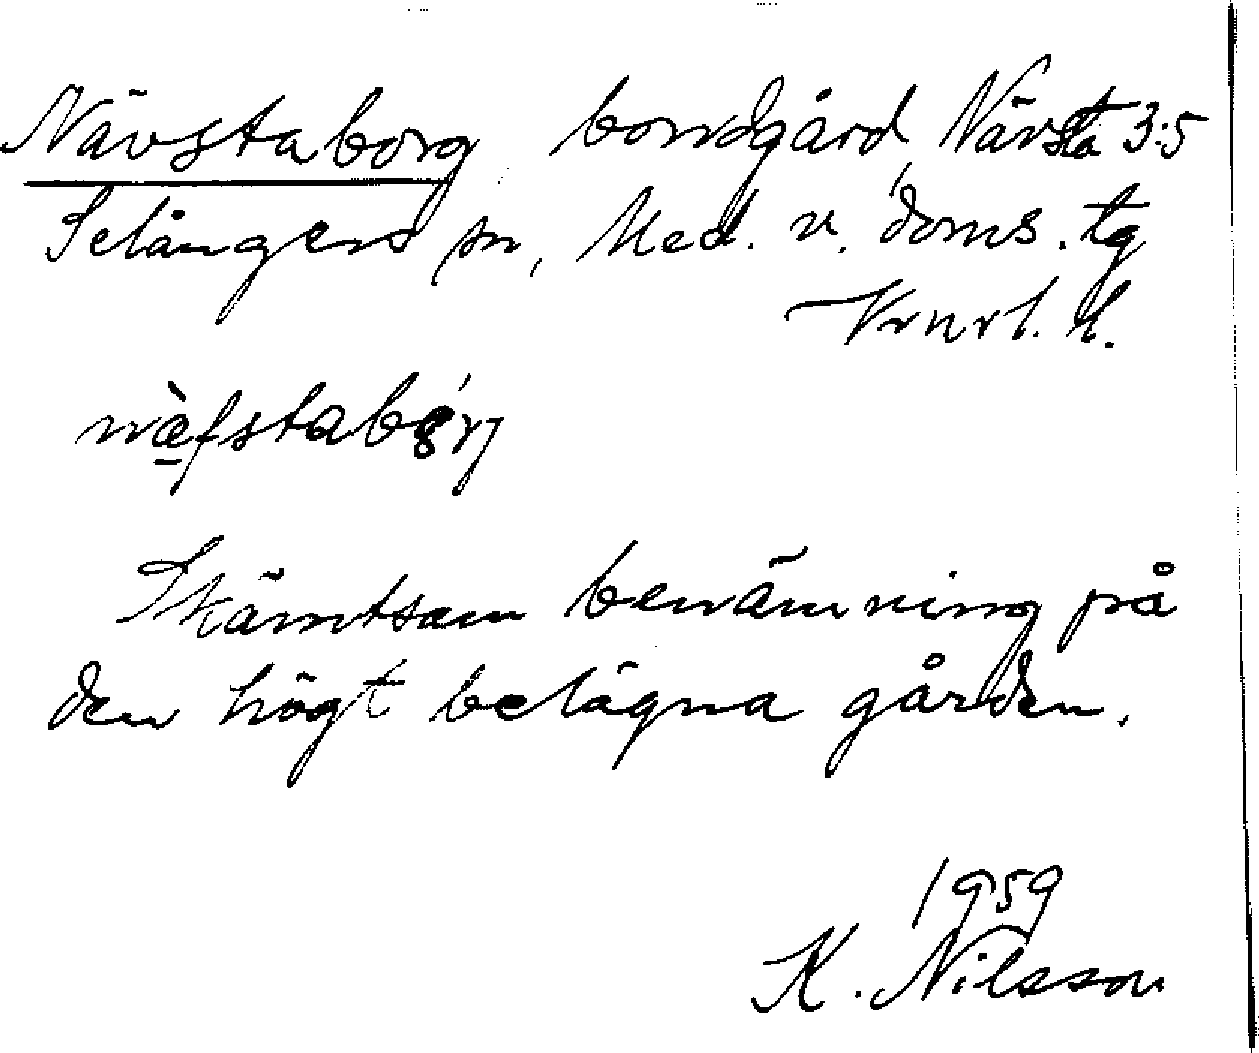 Nävstaborg bondgård, Nävsta 3:5
Selångers sn, Med. v. doms. tg
Vrnrl. l.
näfstabórj
Skämtsam benämning på
den högt belägna gården.
1959
K. Nilsson